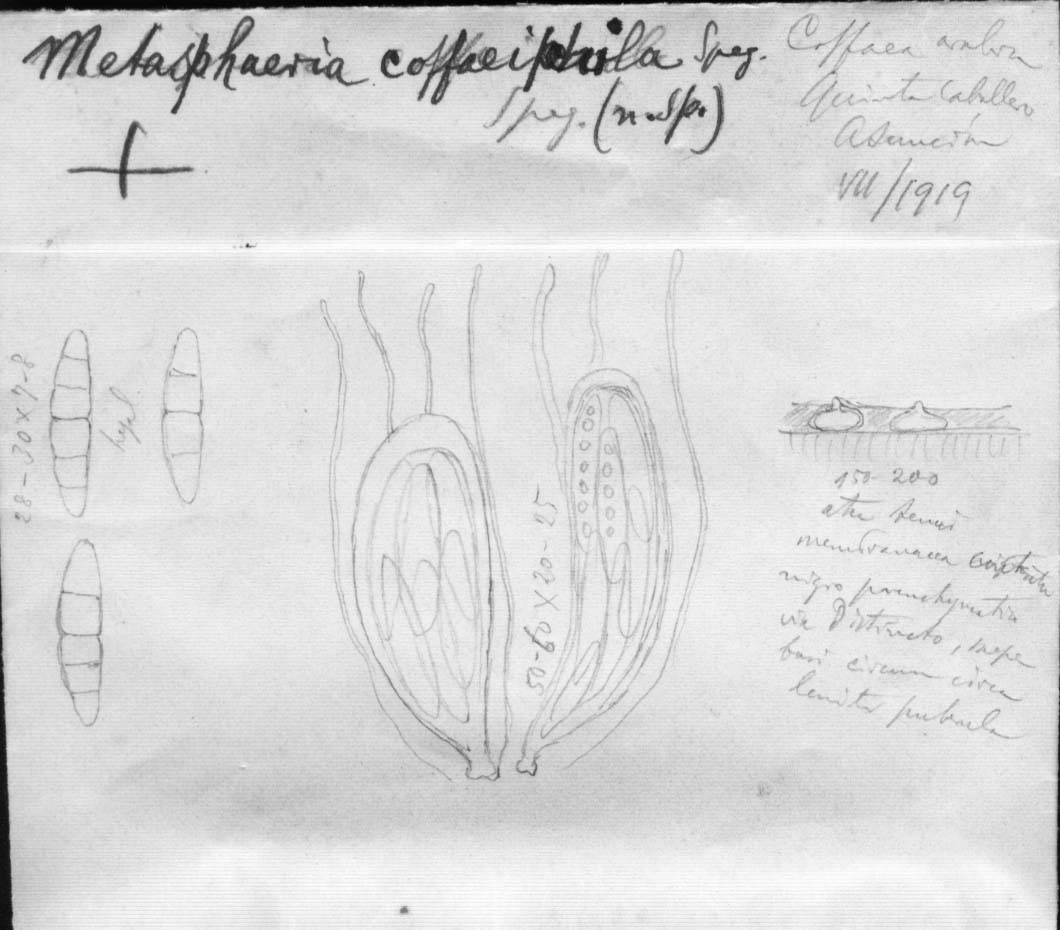 Metasphaeria coffaeiphila Speg.
Speg. (n. Sp.)
Coffaea
Quinta Caballero
Asunción
VII/1919
28-30×7-8
hyal.
50-60×20-25
150-200
atra tenui
membranacea
nigro parenchymatia
vix Distincto, saepe
basi circum circa
leniter puberula